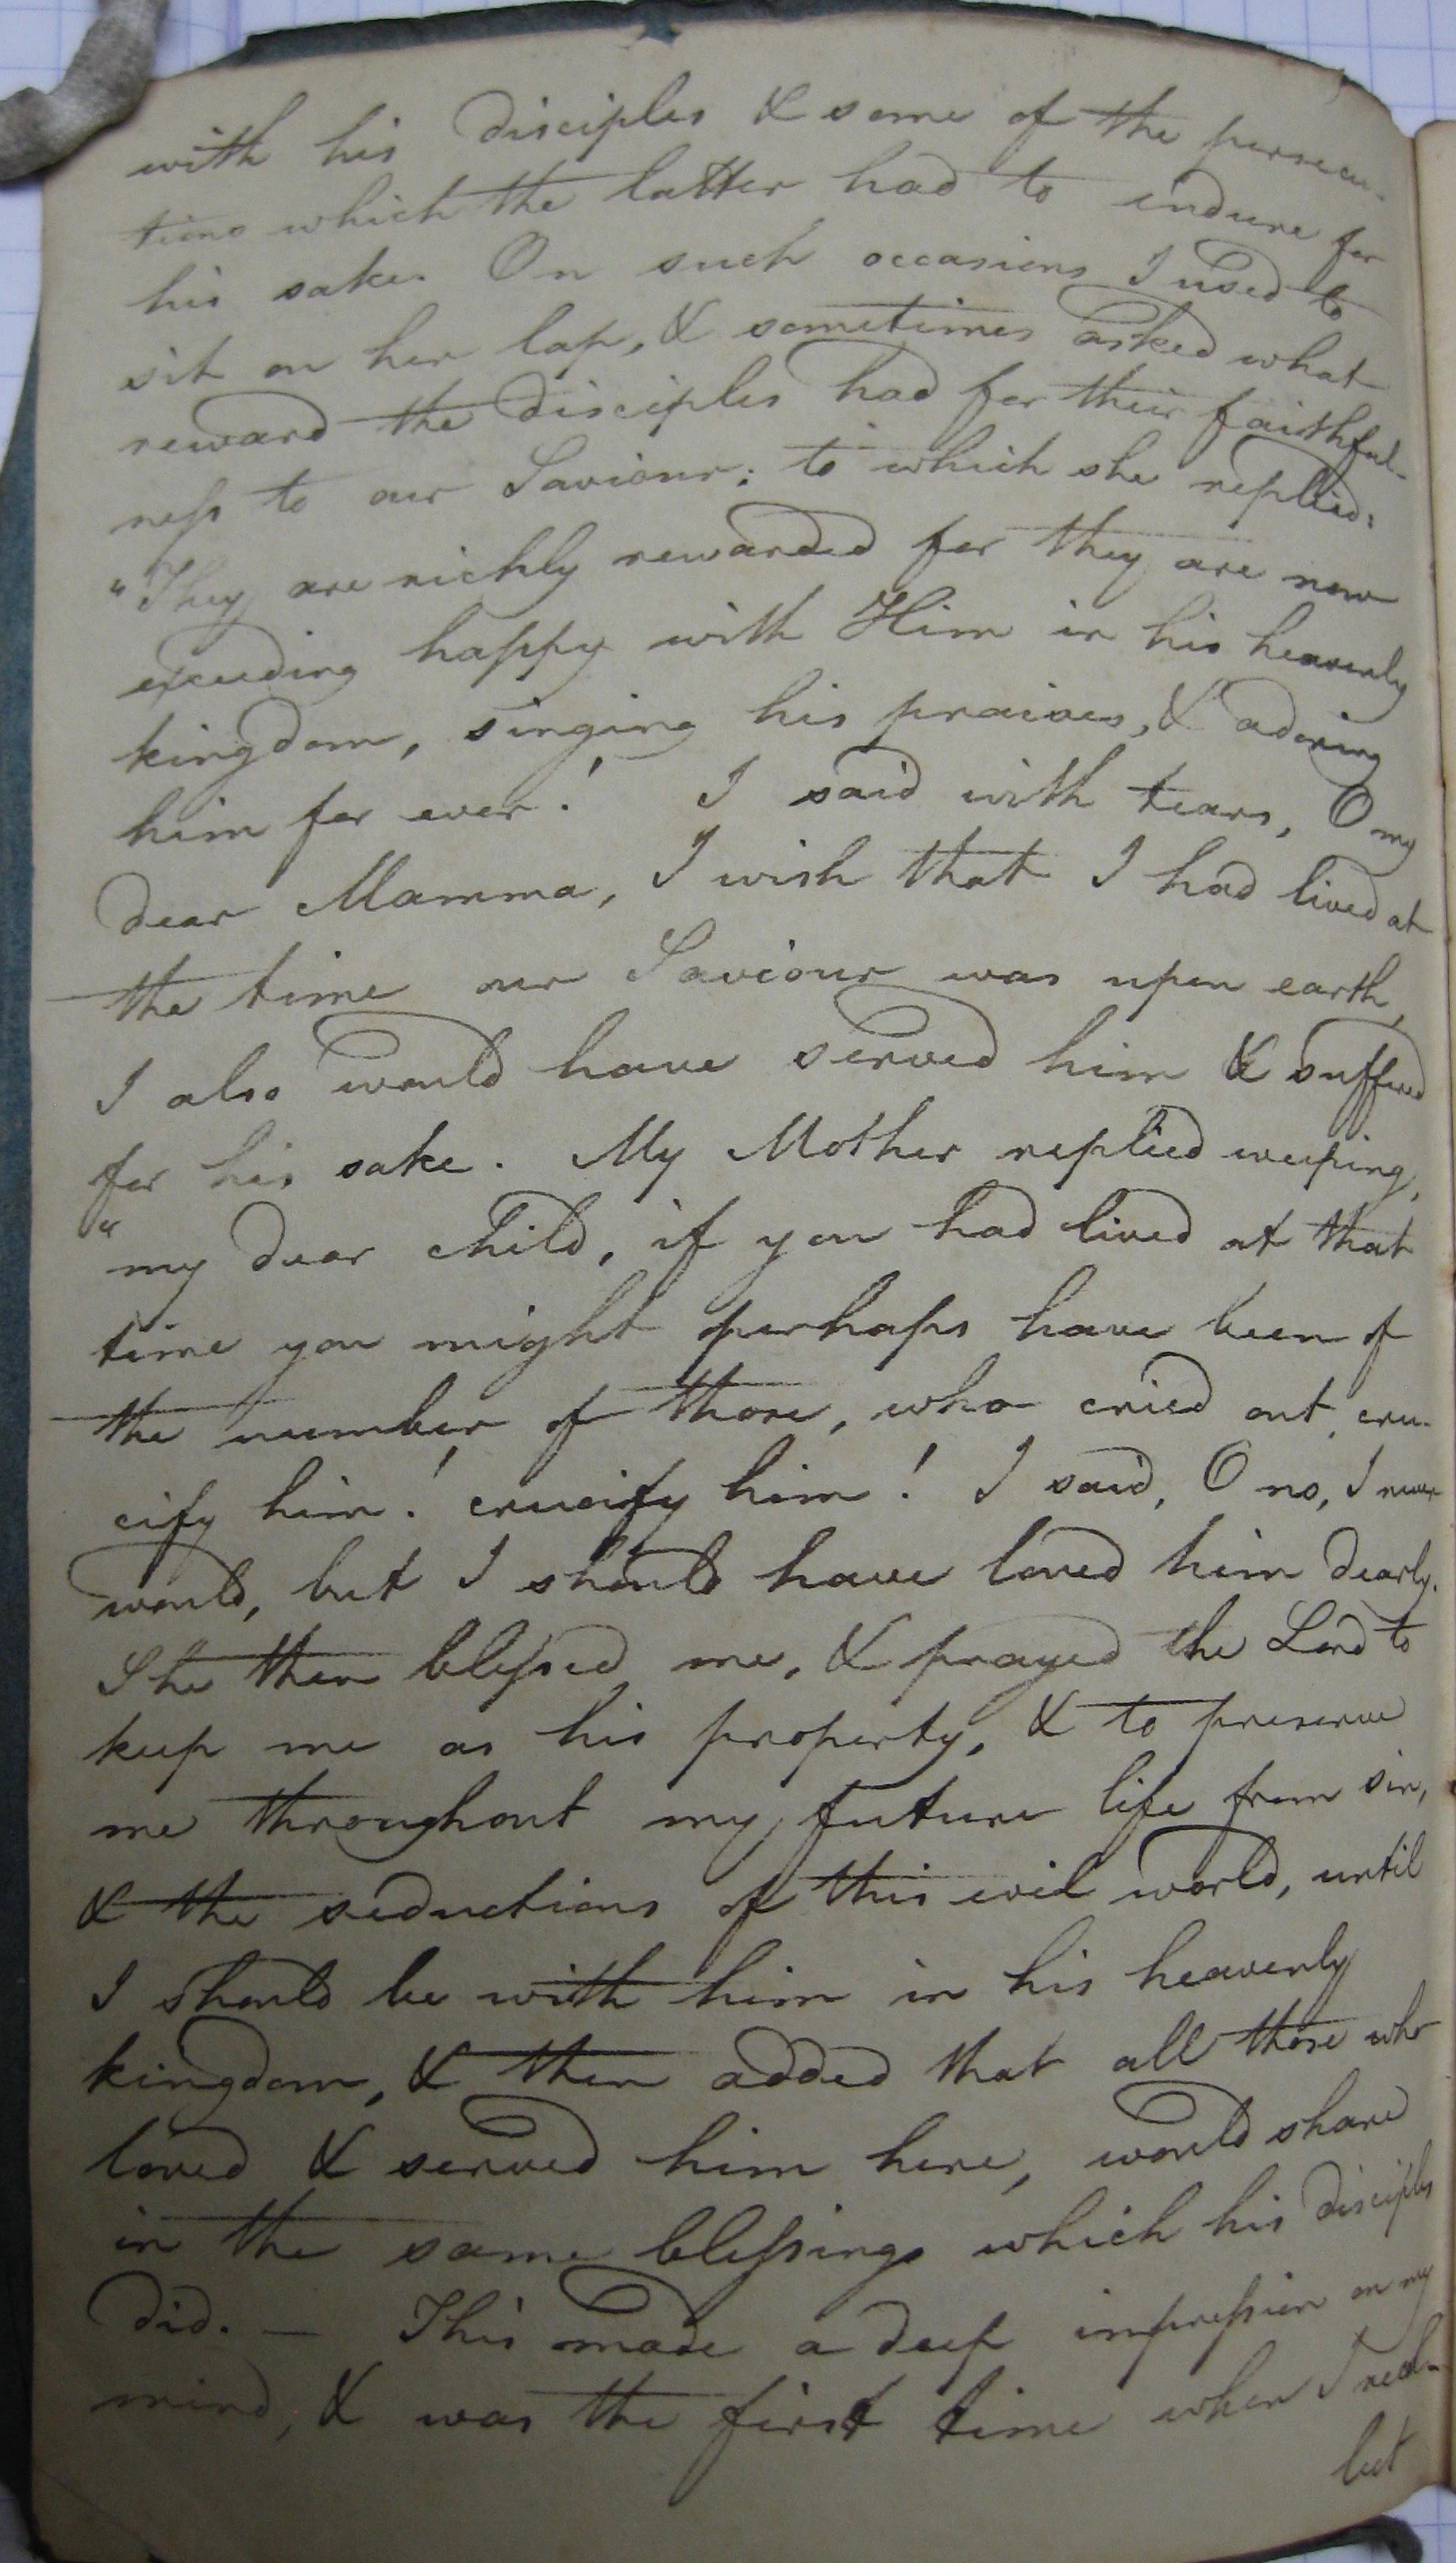 with his disciples & some of the persecu-
tions which the latter had to endure for
his sake. On such occasions I used to
sit on her lap, & sometimes asked what
reward the disciples had for their faithful-
ness to our Saviour; to which she replied:
"They are richly rewarded for they are now
exceeding happy with Him in his heavenly
kingdom, singing his praises, & adoring
him for ever! I said with tears, O my
dear Mamma, I wish that I had lived at
the time our Saviour was upon earth,
I also would have served him & suffered
for his sake. My Mother replied weeping,
"my dear child, if you had lived at that
time you might perhaps have been of
the number of those, who cried out, cru-
cify him! crucify him! I said, O no, I never
would, but I should have loved him dearly.
She then blessed me, & prayed the Lord to
keep me as his property, & to preserve
me throughout my future life from sin,
& the seductions of this evil world, until
I should be with him in his heavenly
kingdom, & then added that all those who
loved & served him here, would share
in the same blessings which his disciples
did. — This made a deep impression on my
mind, & was the first time when I